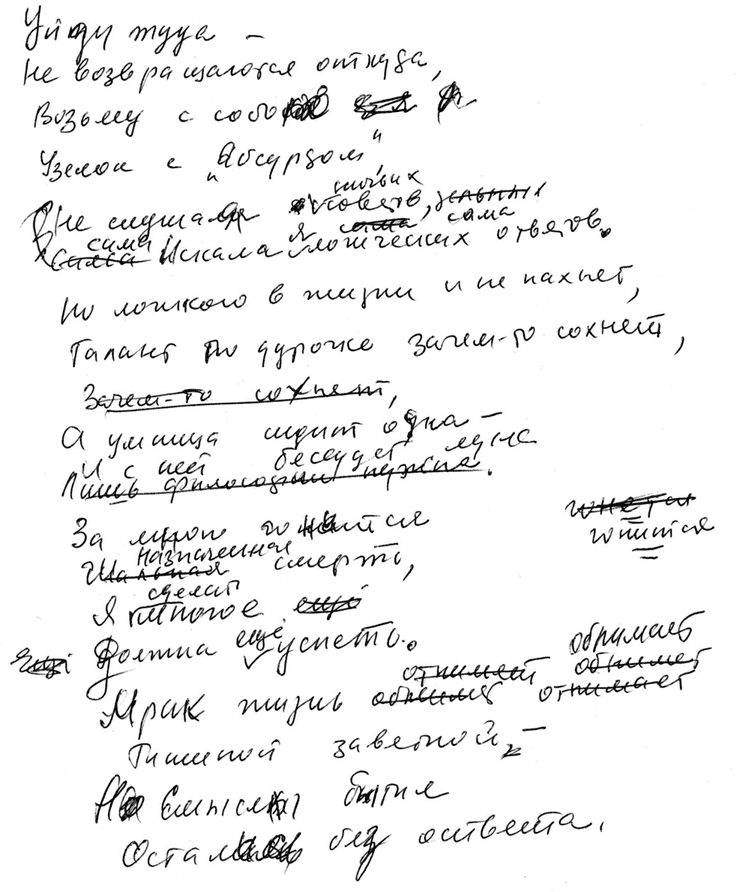 Уйду туда —
Не возвращаются откуда,
Возьму с собой я
Узелок с „Абсурдом",
Не слушая ничьих советов,
Сама искала я логических ответов.
Но логикого в жизни и не пахнет,
Талант по дурочке зачем-то сохнет,
Зачем-то сохнет,
А умница сидит одна —
И с ней беседует луна
Лишь философии нужна.
За мною гонится
гонится
назначенная
Шальная смерть,
сделать
Я многое ещё
Должна ещё успеть.
обнимает
отнимает обнимет
Мрак жизнь обнимет отнимает
Тишиной заветной, —
Но Смыслы бытия
Остались без ответа.